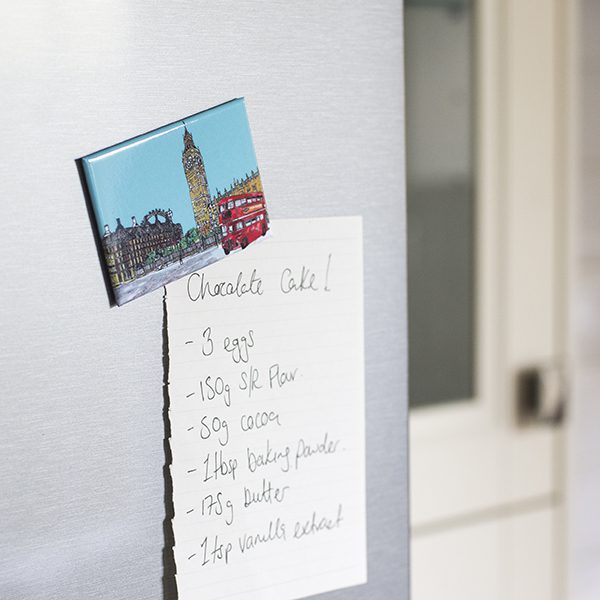 Chocolate Cake!
- 3 eggs
- 150g S/R Flour.
- 50g cocoa
- 1tbsp baking powder.
- 175g butter
- 1tsp vanilla extract